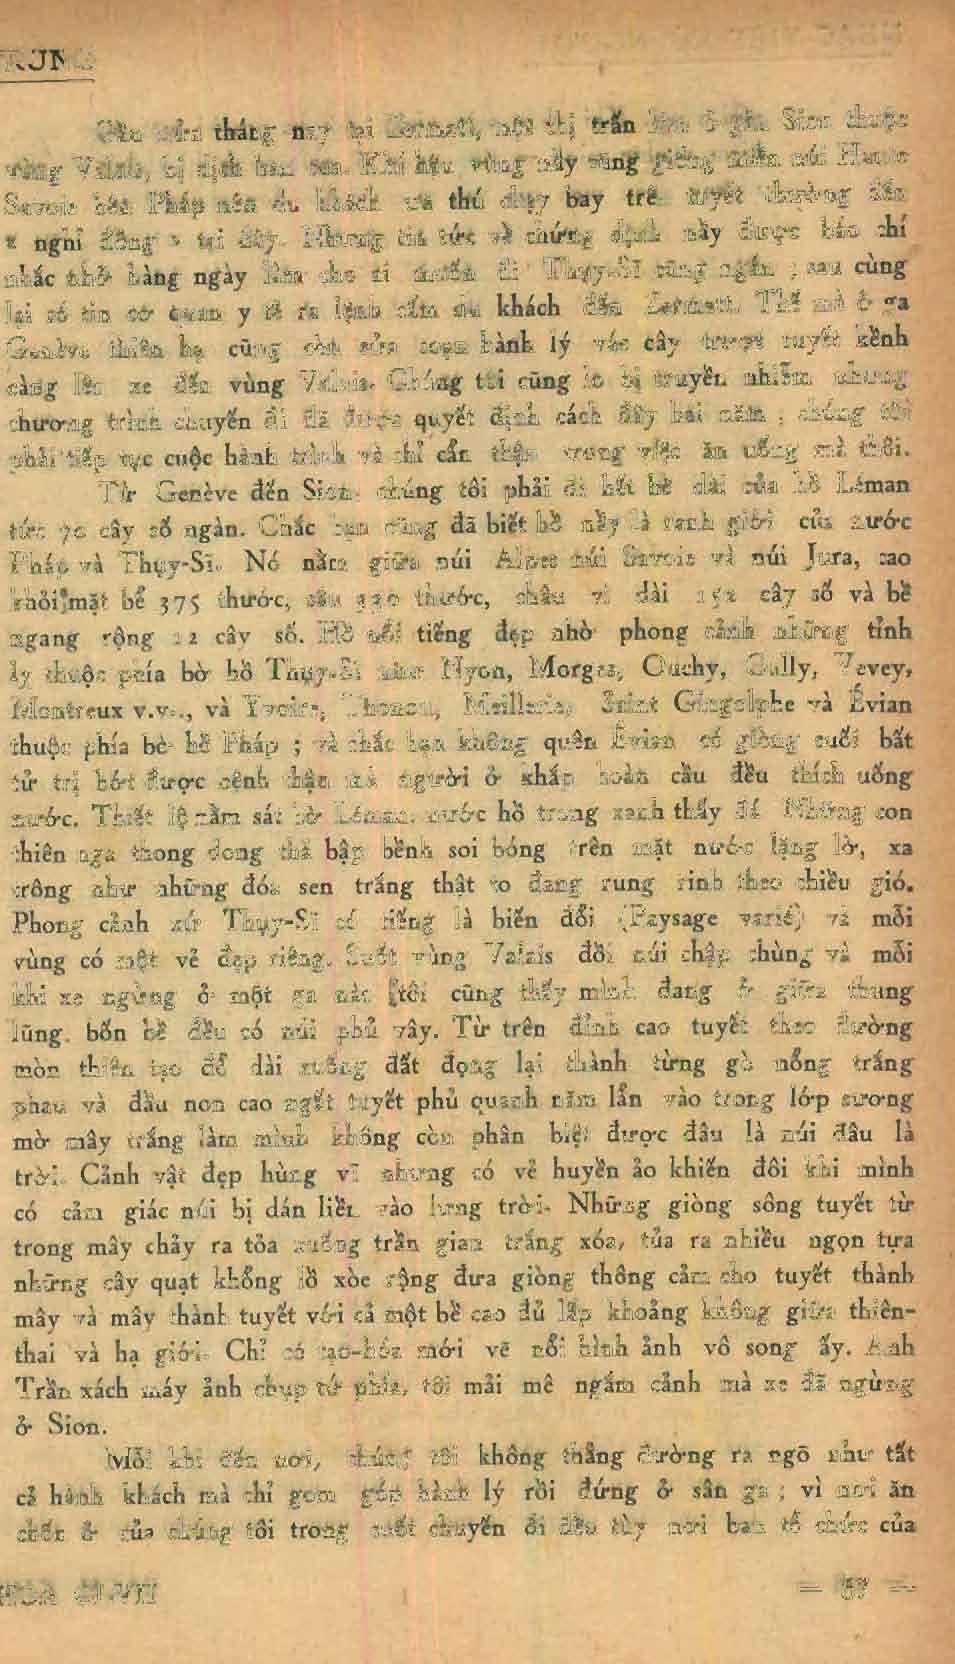 RUNG
tháng nay tại Zermatt, một thị trấn ở gần Sion thuộc
vùng Valais, bị dịch ban Khí hậu vùng nầy cũng giống miền núi Haute
Savoie bên Pháp nên du khách ưa thú chạy bay trên tuyết thường đến
« nghỉ đông » tại đây. Nhưng tin tức về chứng dịch nầy được báo chí
nhắc nhở hàng ngày làm cho ai muốn đi Thụy-Sĩ cũng ngán ; sau cùng
lại có tin cơ quan y tế ra lệnh cấm du khách đến Zermatt. Thế mà ở ga
Genève thiên hạ cũng còn sửa soạn hành lý vác cây trượt tuyết kềnh
càng lên xe đến vùng Valais. Chúng tôi cũng lo bị truyền nhiễm nhưng
chương trình chuyến đi đã được quyết định cách đây hai năm ; chúng tôi
phải tiếp tục cuộc hành trình và chỉ cẩn thận trong việc ăn uống mà thôi.
Từ Genève đến Sion, chúng tôi phải đi hết bề dài của hồ Léman
tức 70 cây số ngàn. Chắc bạn cũng đã biết hồ nầy là ranh giới của nước
Pháp và Thụy-Sĩ. Nó nằm giữa núi Alpes núi Savoie và núi Jura, cao
khỏi mặt bể 375 thước, sâu thước, châu vi dài 152 cây số và bề
ngang rộng 12 cây số. Hồ nổi tiếng đẹp nhờ phong cảnh những tỉnh
lỵ thuộc phía bờ hồ Thụy-Sĩ như Nyon, Morges, Ouchy, Cully, Vevey,
Montreux v.v..., và Yvoire, Thonon, Meillerie, Saint Gingolphe và Évian
thuộc phía bờ hồ Pháp ; và chắc bạn không quên Évian có giòng suối bất
tử trị bớt được bệnh thận mà người ở khắp hoàn cầu đều thích uống
nước. Thiết lộ nằm sát bờ Léman, nước hồ trong xanh thấy đá Những con
thiên nga thong dong thả bập bềnh soi bóng trên mặt nước lặng lờ, xa
trông như những đóa sen trắng thật to đang rung rinh theo chiều gió.
Phong cảnh xứ Thụy-Sĩ có tiếng là biến đổi (Paysage varié) và mỗi
vùng có một vẻ đẹp riêng. Suốt vùng Valais đồi núi chập chùng và mỗi
khi xe ngừng ở một ga nào tôi cũng thấy mình đang ở giữa thung
lũng, bốn bề đều có núi phủ vây. Từ trên đỉnh cao tuyết theo đường
mòn thiên tạo đổ dài xuống đất đọng lại thành từng gò nổng trắng
phau và đầu non cao ngất tuyết phủ quanh năm lẩn vào trong lớp sương
mờ mây trắng làm mình không còn phân biệt được đâu là núi đâu là
trời. Cảnh vật đẹp hùng vĩ nhưng có vẻ huyền ảo khiến đôi khi mình
có cảm giác núi bị dán liền vào lưng trời. Những giòng sông tuyết từ
trong mây chảy ra tỏa xuống trần gian trắng xóa, tủa ra nhiều ngọn tựa
những cây quạt khổng lồ xòe rộng đưa giòng thông cảm cho tuyết thành
mây và mây thành tuyết với cả một bề cao đủ lấp khoảng không giữa thiên-
thai và hạ giới. Chỉ có tạo-hóa mới vẽ nổi hình ảnh vô song ấy. Anh
Trần xách máy ảnh chụp tứ phía, tôi mải mê ngắm cảnh mà xe đã ngừng
ở Sion.
Mỗi khi đến nơi, chúng tôi không thẳng đường ra ngõ như tất
cả hành khách mà chỉ gom góp hành lý rồi đứng ở sân ga ; vì nơi ăn
chốn ở của chúng tôi trong suốt chuyến đi đều tùy nơi ban tổ chức của
— 57 —